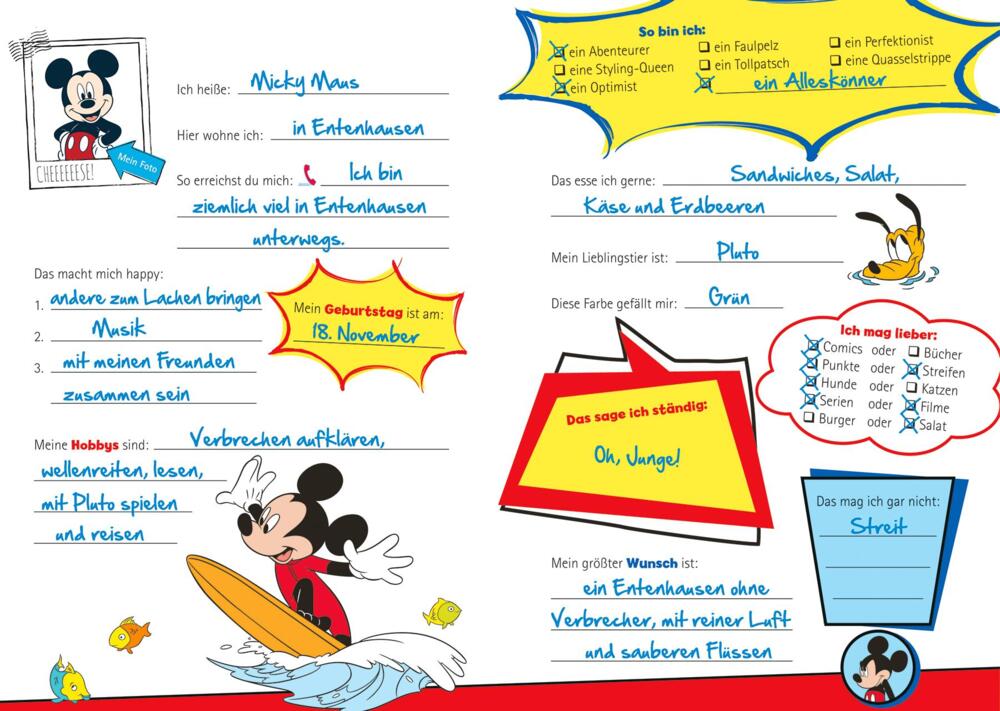 CHEEEEEESE!
Mein Foto
Ich heiße: Micky Maus
Hier wohne ich: in Entenhausen
So erreichst du mich: Ich bin
ziemlich viel in Entenhausen
unterwegs.
Das macht mich happy:
1. andere zum Lachen bringen
2. Musik
3. mit meinen Freunden
zusammen sein
Mein Geburtstag ist am:
18. November
Meine Hobbys sind: Verbrechen aufklären,
wellenreiten, lesen,
mit Pluto spielen
und reisen
So bin ich:
ein Abenteurer ein Faulpelz ein Perfektionist
eine Styling-Queen ein Tollpatsch eine Quasselstrippe
ein Optimist ein Alleskönner
Das esse ich gerne: Sandwiches, Salat,
Käse und Erdbeeren
Mein Lieblingstier ist: Pluto
Diese Farbe gefällt mir: Grün
Ich mag lieber:
Comics oder Bücher
Punkte oder Streifen
Hunde oder Katzen
Serien oder Filme
Burger oder Salat
Das sage ich ständig:
Oh, Junge!
Das mag ich gar nicht:
Streit
Mein größter Wunsch ist:
ein Entenhausen ohne
Verbrecher, mit reiner Luft
und sauberen Flüssen